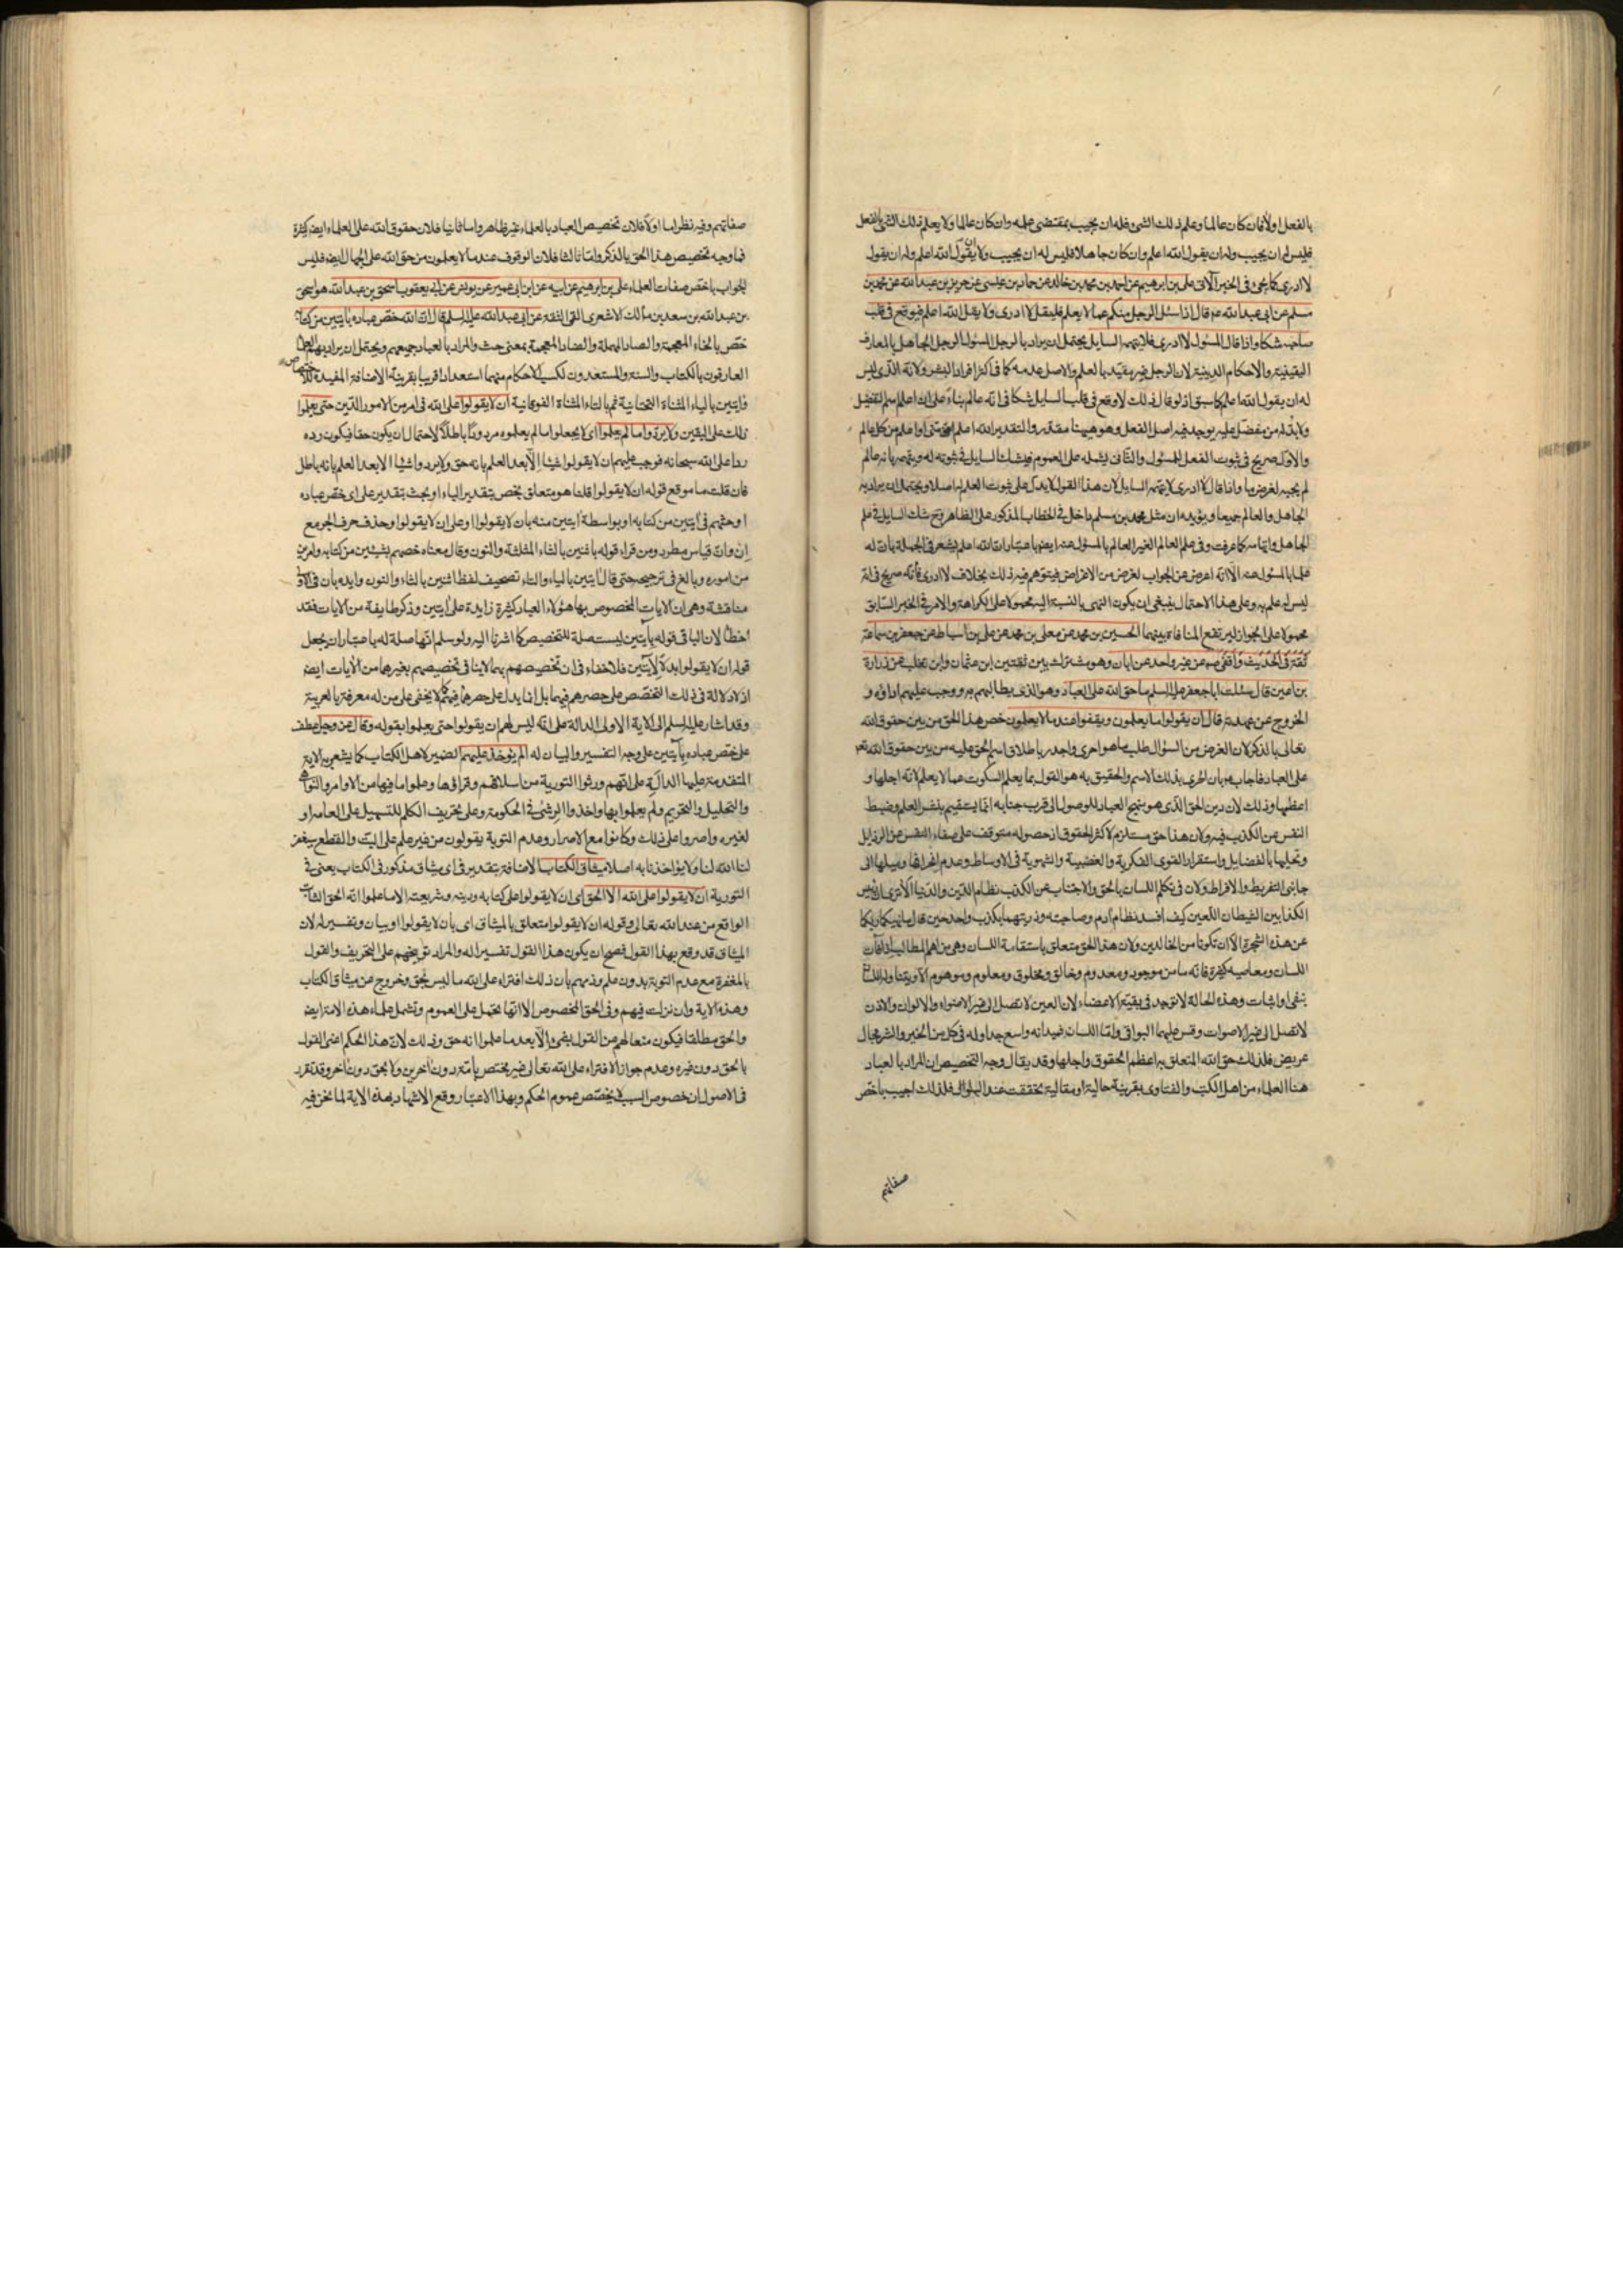 بالفعل اولا فان كان عالما وعلم ذلك الشئ فله ان يجيب بمقتضى علمه وان كان عالما ولا يعلم ذلك الشئ بالفعل
فليس له ان يجيب وله ان يقول الله اعلم وان كان جاهلا فليس له ان يجيب ولا ان يقول الله اعلم وله ان يقول
لا ادرى كما يجئ فى الخبر الآتى على بن ابرهيم عن احمد بن محمد بن خالد عن حماد بن عيسى عن حريز بن عبد الله عن محمد بن
مسلم عن ابى عبد الله ع قال اذا سئل الرجل منكم عما لا يعلم فليقل لا ادرى ولا يقل الله اعلم فيوقع فى قلب
صاحبه شكا واذا قال المسئول لا ادرى فلا يتهمه السايل يحتمل ان يراد بالرجل المسئول الرجل الجاهل بالمعارف
اليقينية والاحكام الدينية لان الرجل غير مقيد بالعلم والاصل عدمه كما فى اكثر افراد البشر ولانه الذى ليس
له ان يقول الله اعلم كما سبق اذ لو قال ذلك لاوقع فى قلب السايل شكا فى انه عالم بناء على ان اعلم اسم التفضيل
ولا بد له من مفضل عليه يوجد فيه اصل الفعل وهو ههنا مقدر والتقدير الله اعلم منى او اعلم من كل عالم
والاول صريح فى ثبوت الفعل للمسئول والثانى يشمله على العموم فيشك السايل فى ثبوته له ويتهمه بانه عالم
لم يجبه لغرض ما واذا قال لا ادرى لا يتهمه السايل لان هذا القول لا يدل على ثبوت العلم له اصلا ويحتمل ان يراد به
الجاهل والعالم جميعا ويؤيده ان مثل محمد بن مسلم داخل فى الخطاب المذكور على الظاهر وح شك السايل فى علم
الجاهل واتهامه كما عرفت وفى علم العالم الغير العالم بالمسئول عنه ايض باعتبار ان الله اعلم يشعر فى الجملة بان له
علما بالمسئول عنه الا انه اعرض عن الجواب لغرض من الاغراض فيتوهم فيه ذلك بخلاف لا ادرى فانه صريح فى انه
ليس له علم به وعلى هذا الاحتمال ينبغى ان يكون النهى بالنسبة اليه محمولا على الكراهة والامر فى الخبر السابق
محمولا على الجواز ليرتفع المنافاة بينهما الحسين بن محمد عن معلى بن محمد عن على بن اسباط عن جعفر بن سماعة
ثقة فى الحديث واقفى عن غير واحد عن ابان وهو مشترك بين ثقتين ابن عثمان وابن تغلب عن زرارة
بن اعين قال سئلت ابا جعفر عليه السلم ما حق الله على العباد وهو الذى يطالبهم به ووجب عليهم اداؤه و
الخروج عن عهدته قال ان يقولوا ما يعلمون ويقفوا عند ما لا يعلمون خص هذا الحق من بين حقوق الله
تعالى بالذكر لان الغرض من السؤال طلب ما هو احرى واجدر باطلاق اسم الحق عليه من بين حقوق الله تع
على العباد فاجاب ع بان الحرى بذلك الاسم والحقيق به هو القول بما يعلم السكوت عما لا يعلم لانه اجلها و
اعظمها وذلك لان دين الحق الذى هو منهج العباد للوصول الى قرب جنابه انما يستقيم بنشر العلم وضبط
النفس عن الكذب فيه ولان هذا حق مستلزم لاكثر الحقوق اذ حصوله متوقف على صفاء النفس عن الرذايل
وتحليها بالفضايل واستقرار القوى الفكرية والغضبية والشهوية فى الاوساط وعدم انحرافها وميلها الى
جانبى التفريط والافراط ولان فى تكلم اللسان بالحق والاجتناب عن الكذب نظام الدين والدنيا الا ترى ان رئيس
الكذابين الشيطان اللعين كيف افسد نظام آدم وصاحبته وذريتهما بكذب واحد حين قال ما نهيكما ربكما
عن هذه الشجرة الا ان تكونا من الخالدين ولان هذا الحق متعلق باستقامة اللسان وهى من اهم المطالب اذ آفات
اللسان ومعاصيه كثيرة فانه ما من موجود ومعدوم وخالق ومخلوق ومعلوم وموهوم الا ويتناوله اللسان
بنفى او اثبات وهذه الحالة لا توجد فى بقية الاعضاء لان العين لا تصل الى غير الاضواء والالوان والاذن
لا تصل الى غير الاصوات وقس عليهما البواقى واما اللسان فميدانه واسع جدا وله فى كل من الخير والشر مجال
عريض فلذلك حق الله المتعلق به اعظم الحقوق واجلها وقد يقال وجه التخصيص ان المراد بالعباد
هنا العلماء من اهل الكتب والفتاوى بقرينة حالية او مقالية تحققت عند السؤال فلذلك اجيب باخص
صفاتهم
صفاتهم وفيه نظر اما اولا فلان تخصيص العباد بالعلماء غير ظاهر واما ثانيا فلان حقوق الله على العلماء ايض كثيرة
فما وجه تخصيص هذا الحق بالذكر واما ثالثا فلان الوقوف عند ما لا يعلمون من حق الله على الجهال ايض فليس
الجواب باخص صفات العلماء على بن ابرهيم عن ابيه عن ابن ابى عمير عن يونس عن ابى يعقوب اسحق بن عبد الله هو اسحق
بن عبد الله بن سعد بن مالك الاشعرى القمى الثقة عن ابى عبد الله عليه السلم قال ان الله خص عباده بآيتين من كتابه
خص بالخاء المعجمة والصاد المهملة والضاد المعجمة بمعنى حث والمراد بالعباد جميعهم ويحتمل ان يراد بهم العلماء
العارفون بالكتاب والسنة والمستعدون لكسب الاحكام منهما استعدادا قريبا بقرينة الاضافة المفيدة للاختصاص
وآيتين بالياء المثناة التحتانية ثم بالتاء المثناة الفوقانية ان لا يقولوا على الله فى امر من الامور الدين حتى يعلموا
ذلك على اليقين ولا يردوا ما لم يعلموا اى لا يجعلوا ما لم يعلموه مردودا باطلا لاحتمال ان يكون حقا فيكون رده
ردا على الله سبحانه فوجب عليهم ان لا يقولوا شيئا الا بعد العلم بانه حق ولا يردوا شيئا الا بعد العلم بانه باطل
فان قلت ما موقع قوله ان لا يقولوا قلنا هو متعلق بخص بتقدير الباء او بحث بتقدير على اى خص عباده
او حثهم فى آيتين من كتابه او بواسطة آيتين منه بان لا يقولوا او على ان لا يقولوا وحذف حرف الجر مع
ان وان قياس مطرد ومن قراء قوله باثنين بالثاء المثلثة والنون وقال معناه خصهم بشيئين من كتابه وامرين
من اموره وبالغ فى ترجيحه حتى قال آيتين بالياء والتاء تصحيف لفظ اثنين بالثاء والنون وايده بان فى الاول
مناقشة وهى ان الايات المخصوص بها هؤلاء العباد كثيرة زايدة على آيتين وذكر طايفة من الايات فقد
اخطأ لان الباء فى قوله بآيتين ليست صلة للتخصيص كما اشرنا اليه ولو سلم انها صلة له باعتبار ان يجعل
قوله ان لا يقولوا بدلا لآيتين فلا خفاء فى ان تخصيصهم بهما لا ينافى تخصيصهم بغيرهما من الايات ايض
اذ لا دلالة فى ذلك التخصص على حصرهم فيهما بل انما يدل على حصرهما فيهم كما لا يخفى على من له معرفة بالعربية
وقد اشار عليه السلم الى الاية الاولى الدالة على انه ليس لهم ان يقولوا حتى يعلموا بقوله وقال عز وجل عطف
على خص عباده بآيتين على وجه التفسير والبيان له الم يؤخذ عليهم الضمير لاهل الكتاب كما يشعر به الاية
المتقدمة عليها الدالة على انهم ورثوا التورية من اسلافهم وقراؤها وعلموا ما فيها من الاوامر والنواهى
والتحليل والتحريم ولم يعملوا بها واخذوا الرشى فى الحكومة وعلى تحريف الكلم للتسهيل على العامة او
لغيره واصروا على ذلك وكانوا مع الاصرار وعدم التوبة يقولون من غير علم على البت والقطع سيغفر
لنا الله لنا ولا يؤاخذنا به اصلا ميثاق الكتاب الاضافة بتقدير فى اى ميثاق مذكور فى الكتاب يعنى فى
التورية ان لا يقولوا على الله الا الحق اى ان لا يقولوا على كتابه ودينه وشريعته الا ما علموا انه الحق الثابت
الواقع من عند الله تعالى وقوله ان لا يقولوا متعلق بالميثاق اى بأن لا يقولوا او بيان وتفسير له لان
الميثاق قد وقع بهذا القول فصح ان يكون هذا القول تفسيرا له والمراد توبيخهم على التحريف والقول
بالمغفرة مع عدم التوبة بدون علم وذمهم بأن ذلك افتراء على الله ما ليس بحق وخروج عن ميثاق الكتاب
وهذه الاية وان نزلت فيهم وفى الحق المخصوص الا انها تحمل على العموم وتشمل علماء هذه الامة ايض
والحق مطلقا فيكون منعا لهم من القول بشئ الا بعد ما علموا انه حق وذلك لان هذا الحكم اعنى القول
بالحق دون غيره وعدم جواز الافتراء على الله تعالى غير مختص بأمة دون آخرين ولا بحق دون آخر وقد تقرر
فى الاصول ان خصوص السبب لا يخصص عموم الحكم وبهذا الاعتبار وقع الاستشهاد بهذه الاية لما نحن فيه